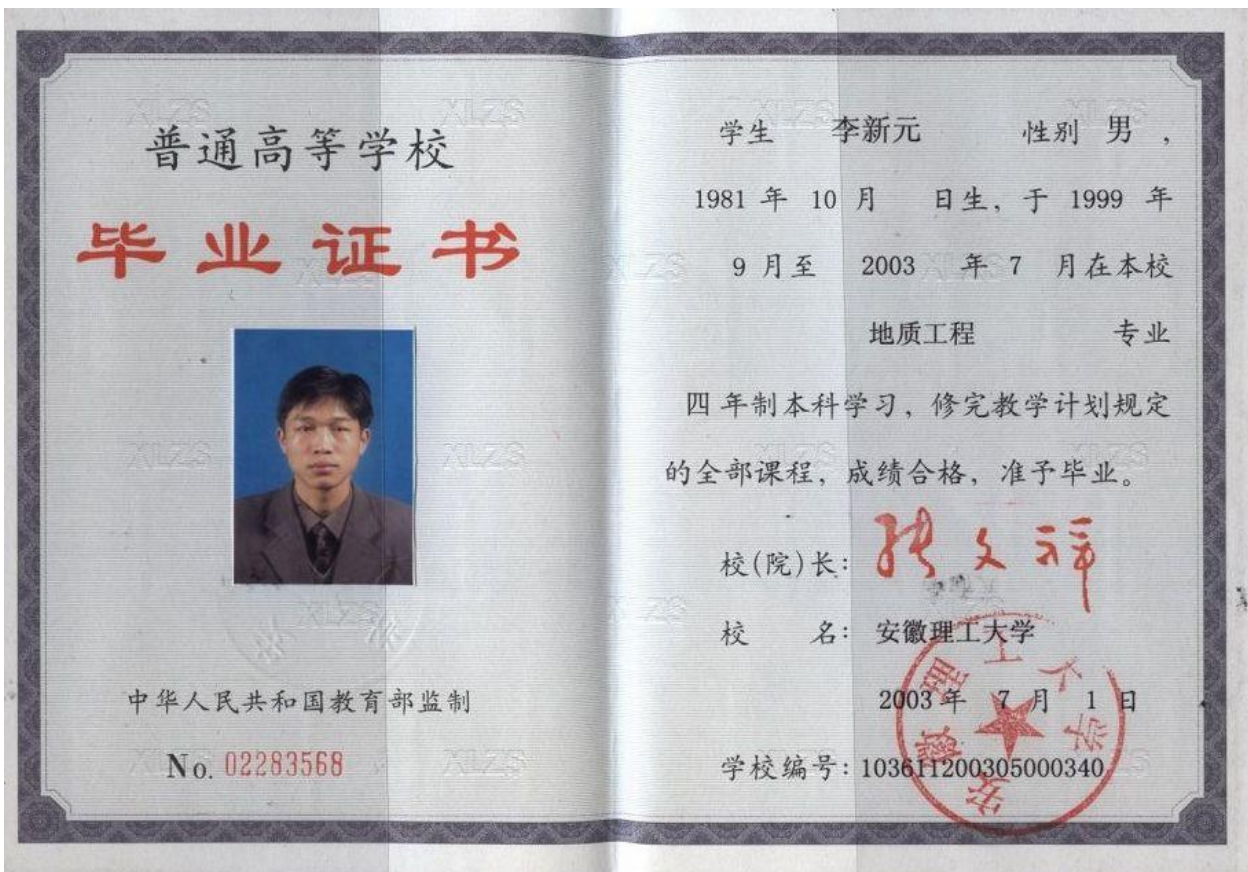 普通高等学校
毕业证书
中华人民共和国教育部监制
No. 02283568
学生 李新元 性别 男 ,
1981 年 10 月 日生, 于 1999 年
9 月至 2003 年 7 月在本校
地质工程 专业
四 年制本科学习, 修完教学计划规定
的全部课程, 成绩合格, 准予毕业。
校(院)长: 张文祥
校 名: 安徽理工大学
2003 年 7 月 1 日
学校编号: 103611200305000340
安徽理工大学
XLZS